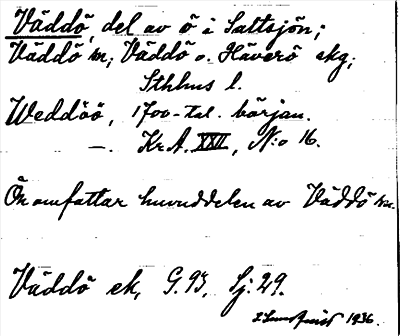 Väddö, del av ö i Saltsjön;
Väddö sn; Väddö o. Häverö skg;
Sthlms l.
Weddöö, 1700-tal. början.
—. Kr.A. XXII, N:o 16.
Ön omfattar huvuddelen av Väddö sn.
Väddö ek, G. 93, Sj. 29.
1936.